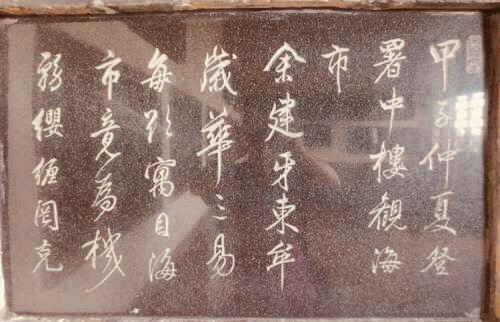 甲子仲夏登
署中樓觀海
市
余建牙東牟
歲華三易
每欲寓目海
市竟爲機
務纓纏罔克